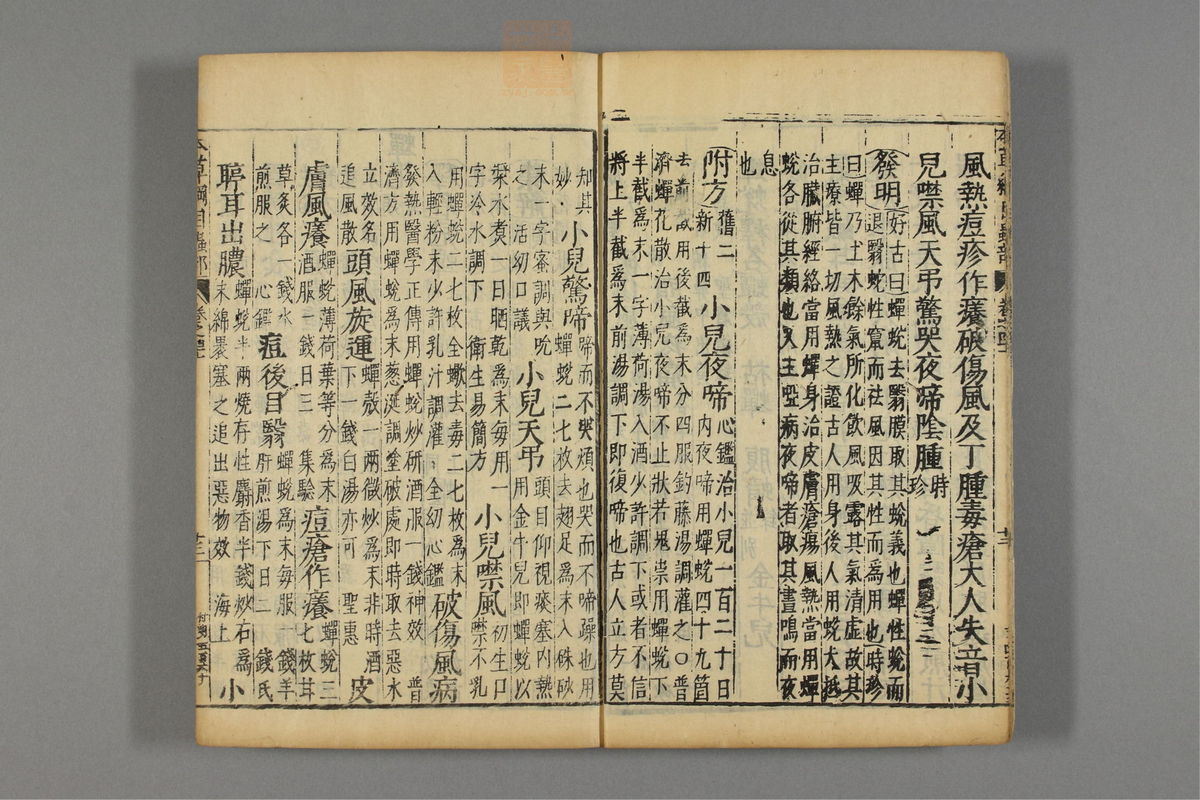 本草綱目蟲部
風熱痘疹作癢破傷風及丁腫毒瘡大人失音小
兒噤風天吊驚哭夜啼陰腫時珍
發明好古曰蟬蛻去翳膜取其蛻義也蟬性蛻而
退翳蛇性竄而祛風因其性而爲用也時珍
曰蟬乃土木餘氣所化飲風吸露其氣清虛故其
主療皆一切風熱之證古人用身後人用蛻大抵
治臟腑經絡當用蟬身治皮膚瘡瘍風熱當用蟬
蛻各從其類也又主啞病夜啼者取其晝鳴而夜
息也
附方舊二新十四 小兒夜啼心鑑治小兒一百二十日
內夜啼用蟬蛻四十九箇
去前截用後截爲末分四服釣藤湯調灌之○普
濟蟬孔散治小兒夜啼不止狀若鬼祟用蟬蛻下
半截爲末一字薄荷湯入酒少許調下或者不信
將上半截爲末前湯調下即復啼也古人立方莫
知其妙 小兒驚啼啼而不哭煩也哭而不啼躁也用
蟬蛻二七枚去翅足爲末入硃砂
末一字蜜調與吮之 活幼口議 小兒天吊頭目仰視痰塞內熱
用金牛兒即蟬蛻以
漿水煮一日晒乾爲末每用一字冷水調下 衛生易簡方 小兒噤風初生口噤不乳
用蟬蛻二七枚全蠍去毒二七枚爲末
入輕粉末少許乳汁調灌 全幼心鑑 破傷風病
發熱醫學正傳用蟬蛻炒研酒服一錢神效 普
濟方用蟬蛻爲末葱涎調塗破處即時取去惡水
立效名追風散 頭風旋運蟬殼一兩微炒爲末非時酒
下一錢白湯亦可 聖惠 皮
膚風癢蟬蛻薄荷葉等分爲末
酒服一錢日三 集驗 痘瘡作癢蟬蛻三七枚甘
草炙各一錢水煎服之 心鑑 痘後目翳蟬蛻爲末每服一錢羊
肝煎湯下日二 錢氏
聤耳出膿蟬蛻半兩燒存性麝香半錢炒右爲
末綿裹塞之追出惡物效 海上 小
本草綱目蟲部